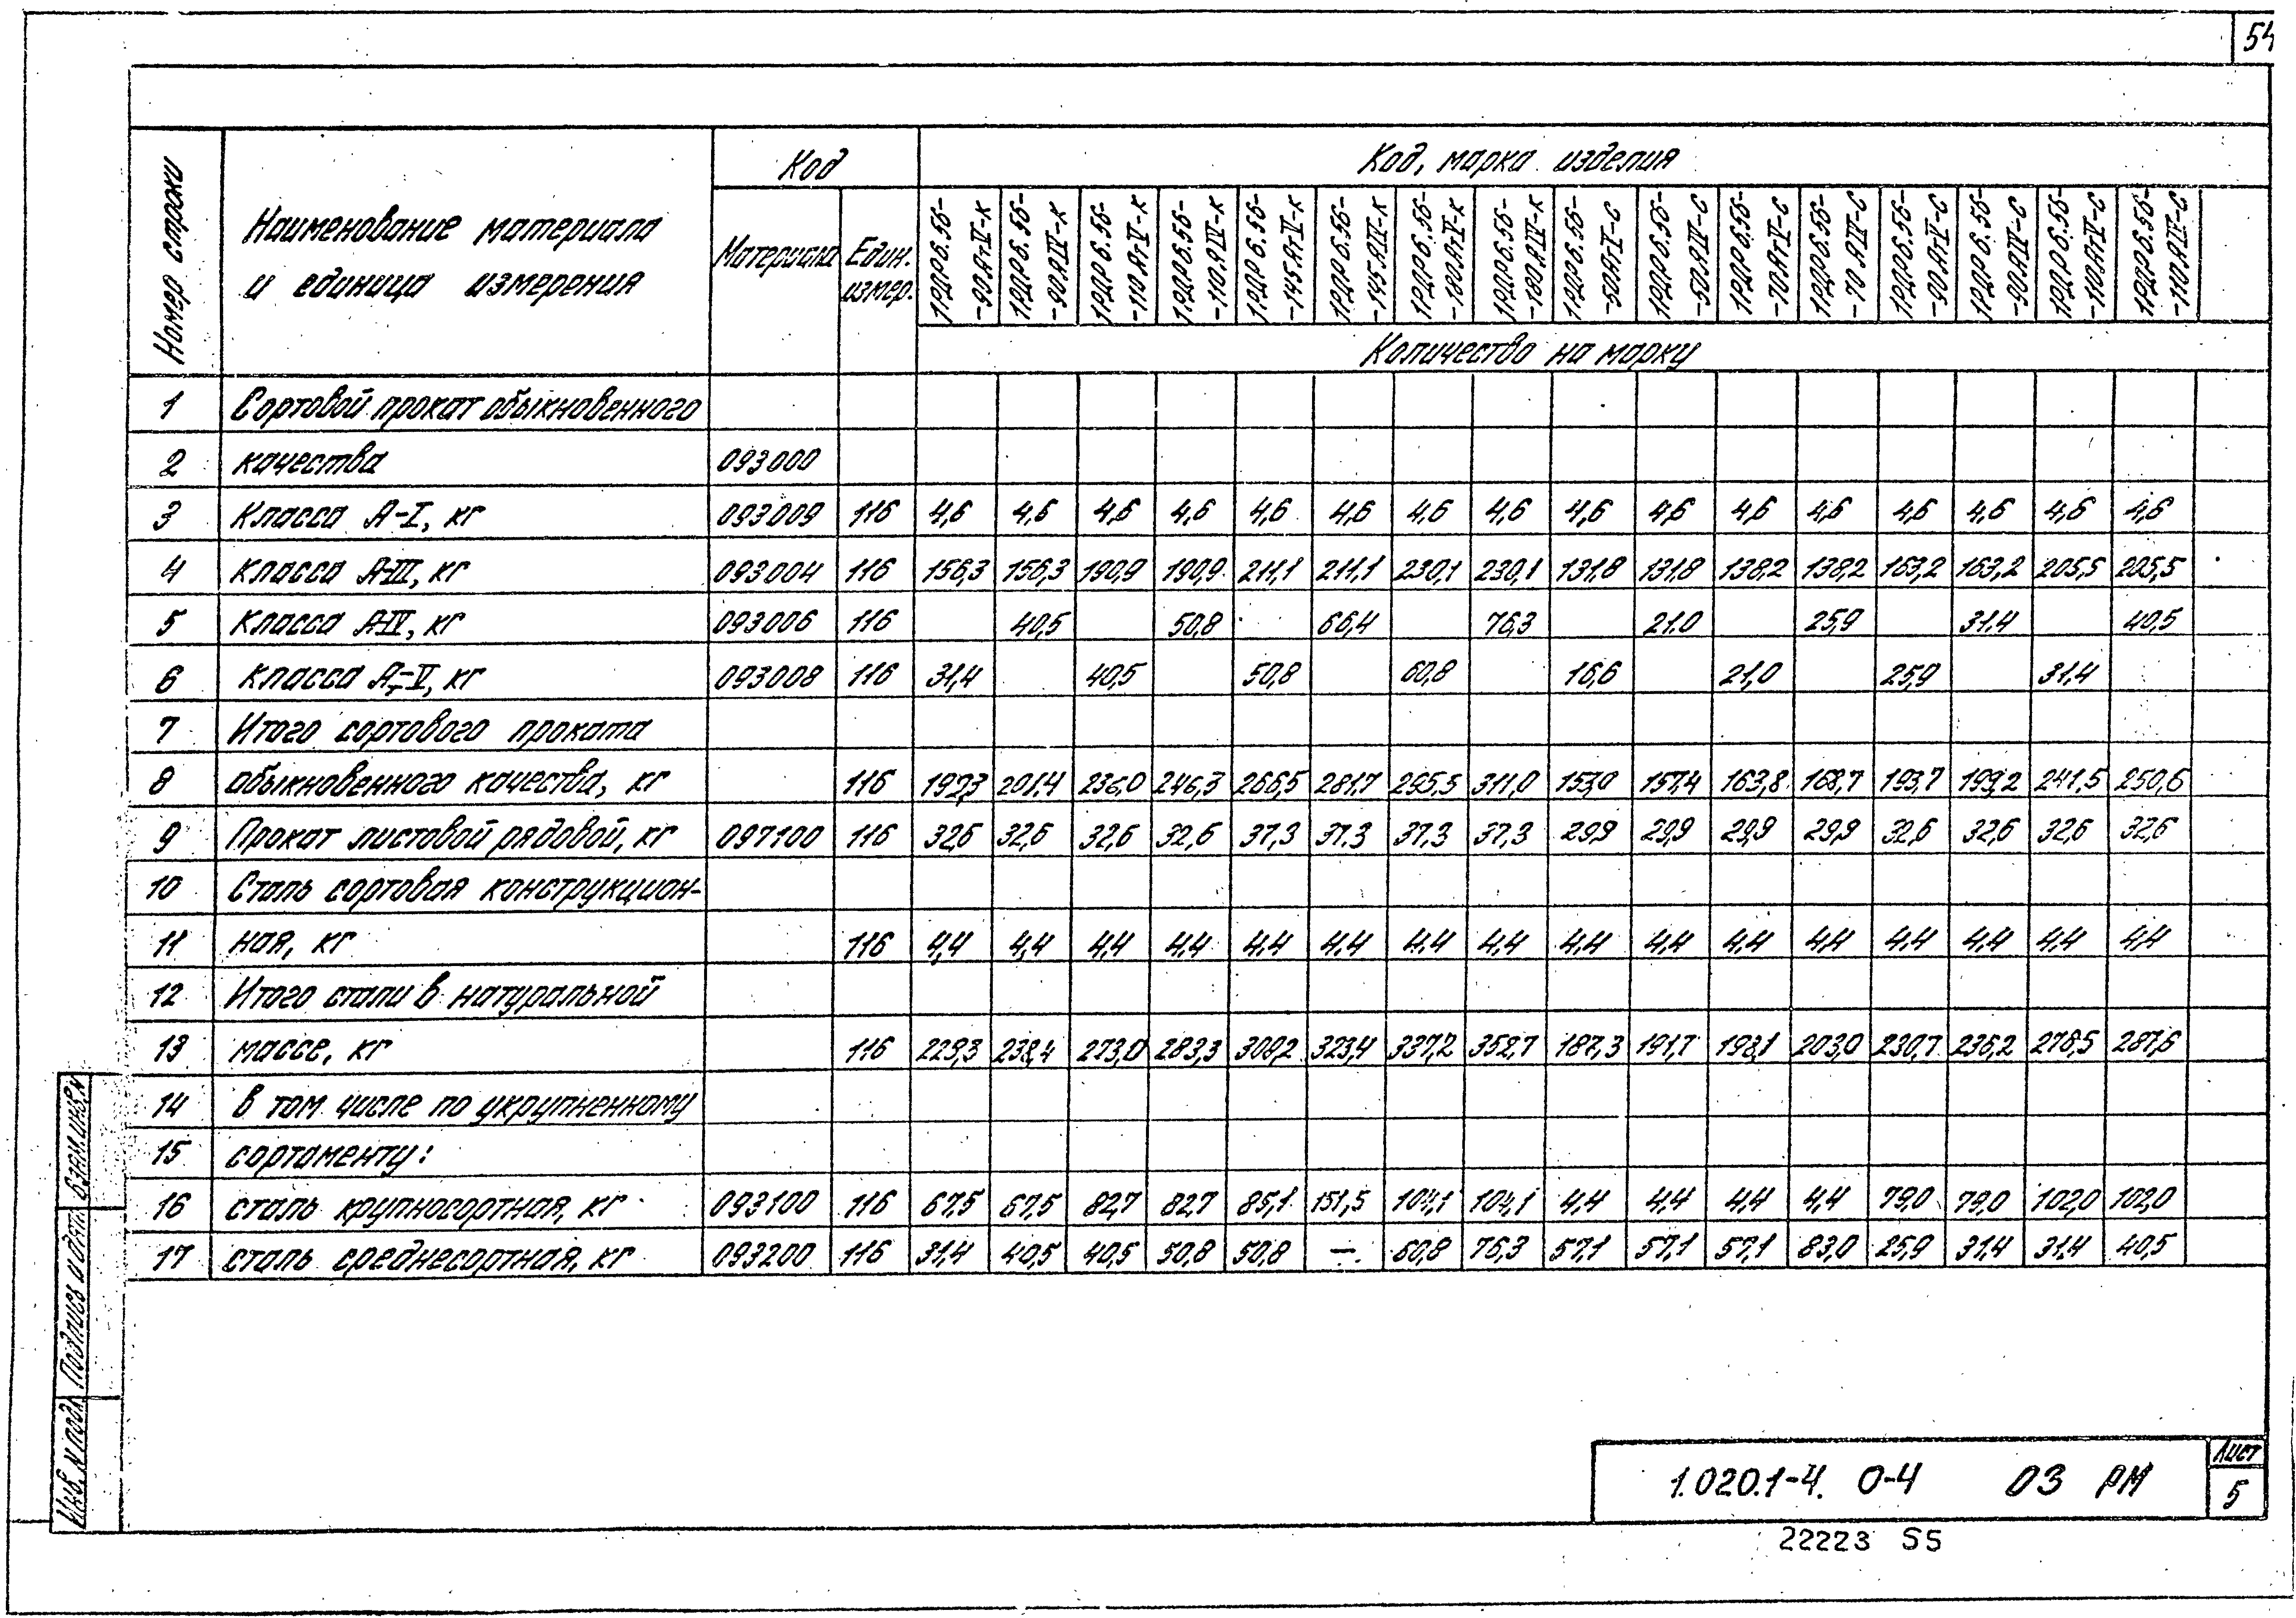 54
Номер строки
Наименование материала
и единица измерения
Код
Материала
Един.
измер.
Код, марка изделия
1РДР6.56-
-90АтV-к
1РДР6.56-
-90АIV-к
1РДР6.56-
-110АтV-к
1РДР6.56-
-110АIV-к
1РДР6.56-
-145АтV-к
1РДР6.56-
-145АIV-к
1РДР6.56-
-180АтV-к
1РДР6.56-
-180АIV-к
1РДР6.56-
-50АтV-с
1РДР6.56-
-50АIV-с
1РДР6.56-
-70АтV-с
1РДР6.56-
-70АIV-с
1РДР6.56-
-90АтV-с
1РДР6.56-
-90АIV-с
1РДР6.56-
-110АтV-с
1РДР6.56-
-110АIV-с
Количество на марку
1 Сортовой прокат обыкновенного
2 качества 093000
3 Класса А-I, кг 093009 116 4,6 4,6 4,6 4,6 4,6 4,6 4,6 4,6 4,6 4,6 4,6 4,6 4,6 4,6 4,6 4,6
4 Класса А-III, кг 093004 116 156,3 156,3 190,9 190,9 211,1 211,1 230,1 230,1 131,8 131,8 138,2 138,2 163,2 163,2 205,5 205,5
5 Класса А-IV, кг 093006 116 40,5 50,8 66,4 76,3 21.0 25,9 31.4 40,5
6 Класса Ат-V, кг 093008 116 31,4 40,5 50,8 60,8 16,6 21,0 25,9 31.4
7 Итого сортового проката
8 обыкновенного качества, кг 116 192,3 201.4 236,0 246,3 266,5 281.7 295,5 311,0 153,0 157,4 163,8 168,7 193,7 199,2 241,5 250,6
9 Прокат листовой рядовой, кг 097100 116 32,6 32,6 32,6 32,6 37,3 37.3 37.3 37.3 29,9 29,9 29,9 29,9 32,6 32,6 32,6 32,6
10 Сталь сортовая конструкцион-
11 ная, кг 116 4,4 4,4 4,4 4,4 4,4 4,4 4,4 4,4 4,4 4,4 4,4 4,4 4,4 4,4 4,4 4,4
12 Итого стали в натуральной
13 массе, кг 116 229,3 238,4 273,0 283,3 308,2 323,4 337,2 352,7 187,3 191,7 198,1 203,0 230,7 236,2 278,5 287,6
14 в том числе по укрупненному
15 сортаменту:
16 сталь крупносортная, кг 093100 116 67,5 67,5 82,7 82,7 85,1 151,5 104,1 104,1 4,4 4,4 4,4 4,4 79,0 79,0 102,0 102,0
17 сталь среднесортная, кг 093200 116 31.4 40,5 40,5 50,8 50,8 — 60,8 76,3 57,1 57,1 57,1 83,0 25,9 31.4 31.4 40,5
Взам.инв.N
Подпись и дата
Инв. N подл.
1.020.1-4. 0-4 03 РМ
Лист
5
22223 55